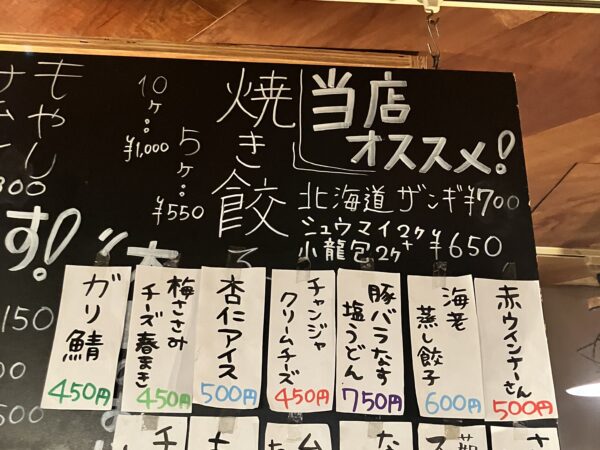 当店
オススメ!
北海道ザンギ¥700
シュウマイ2ケ
小龍包2ケ
¥650
焼き餃
10ケ:¥1,000
5ケ:¥550
もやし
す!
150
赤ウインナーさん
500円
海老
蒸し餃子
600円
豚バラなす
塩うどん
750円
チャンジャ
クリームチーズ
450円
杏仁アイス
500円
梅ささみ
チーズ春まき
450円
ガリ鯖
450円